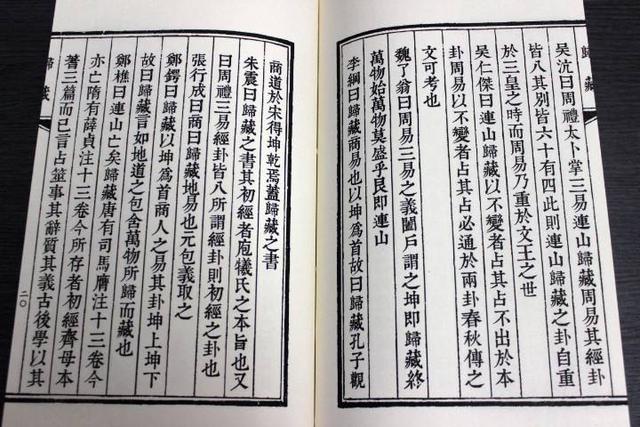 歸藏
吳沆曰周禮太卜掌三易連山歸藏周易其經卦
皆八其別皆六十有四此則連山歸藏之卦自重
於三皇之時而周易乃重於文王之世
吳仁傑曰連山歸藏以不變者占其占不出於本
卦周易以不變者占其占必通於兩卦春秋傳之
文可考也
魏了翁曰周易三易之義闔戶謂之坤即歸藏終
萬物始萬物莫盛乎艮即連山
李綱曰歸藏商易也以坤為首故曰歸藏孔子觀
商道於宋得坤乾焉蓋歸藏之書
朱震曰歸藏之書其初經者庖犧氏之本旨也又
曰周禮三易經卦皆八所謂經卦則初經之卦也
張行成曰商曰歸藏地易也元包義取之
鄭鍔曰歸藏以坤為首商人之易其卦坤上坤下
故曰歸藏言如地道之包含萬物所歸而藏也
鄭樵曰連山亡矣歸藏唐有司馬膺注十三卷今
亦亡隋有薛貞注十三卷今所存者初經齊母本
蓍三篇而已言占筮事其辭質其義古後學以其
歸藏
二〇